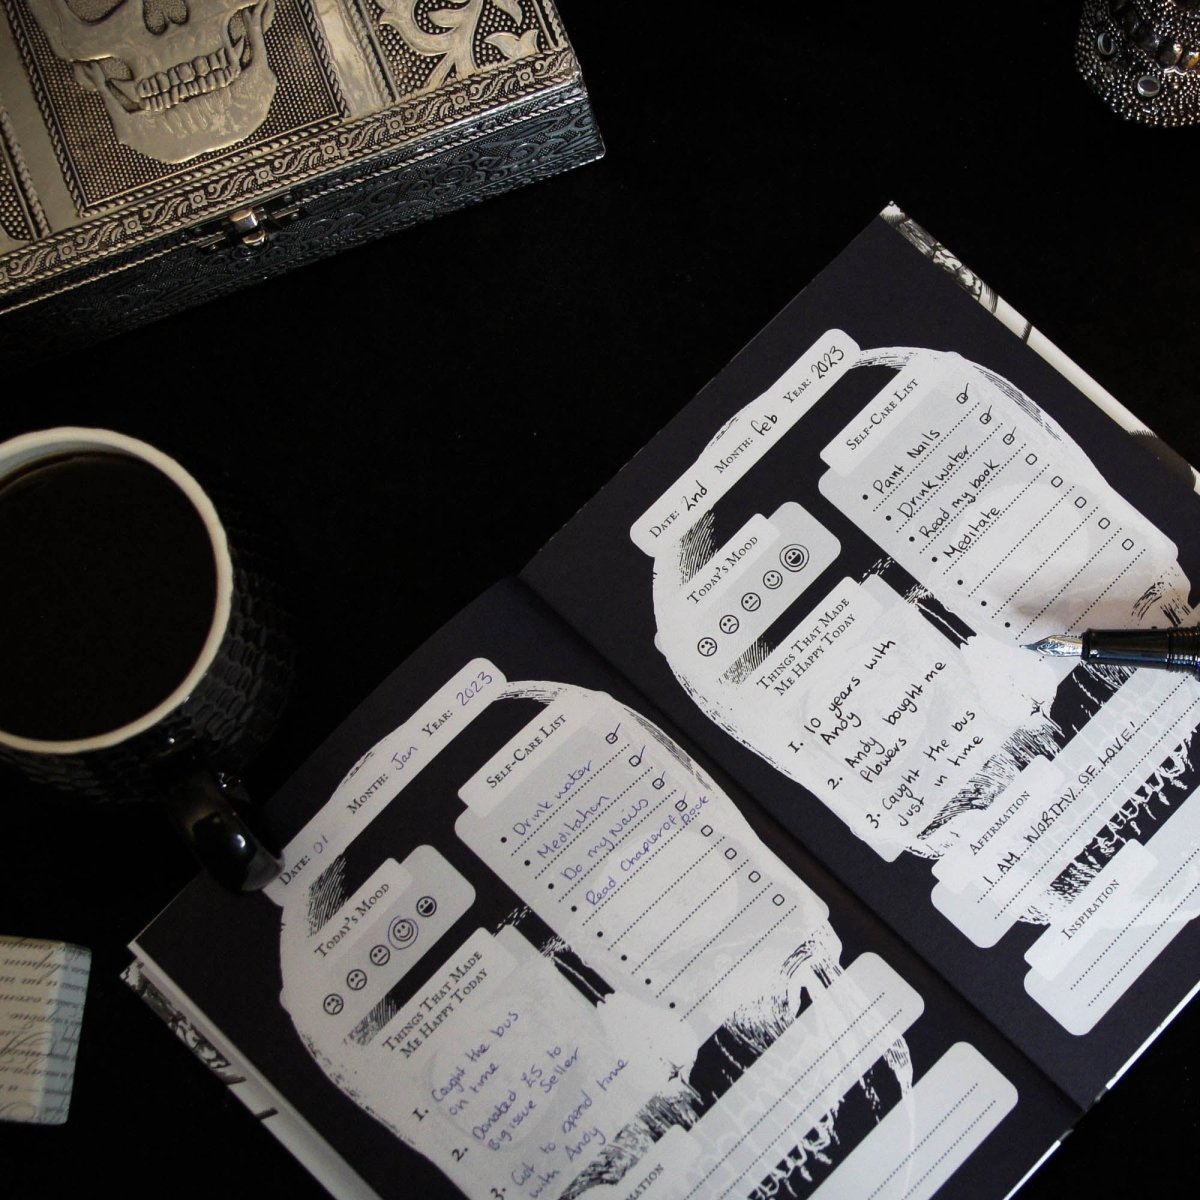 Date: 01 Month: Jan Year: 2023
Today's Mood
Things That Made
Me Happy Today
1. Caught the bus
on time
2. Donated £5 to
Big issue Seller
3. Got to spend time
with Andy
Self-Care List
Drink water
Meditation
Do my Nails
Read Chapter of Book
Affirmation
Date: 2nd Month: Feb Year: 2023
Today's Mood
Things That Made
Me Happy Today
1. 10 years with
Andy
2. Andy bought me
flowers
3. Caught the bus
just in time
Self-Care List
Paint Nails
Drink water
Read my book
Meditate
Affirmation
I AM WORTHY OF LOVE!
Inspiration